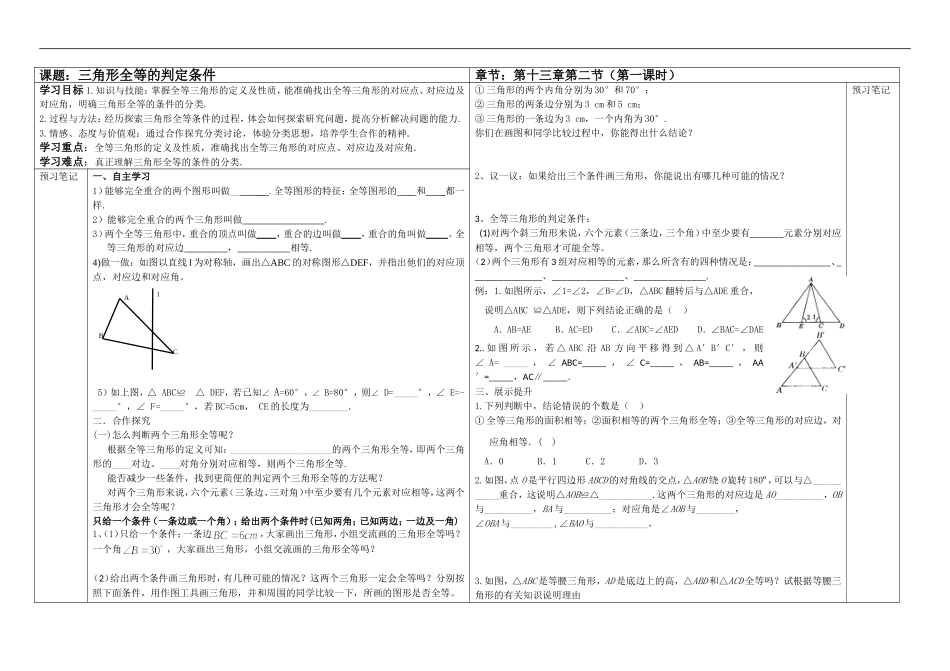 课题：三角形全等的判定条件
章节：第十三章第二节（第一课时）
学习目标 1.知识与技能：掌握全等三角形的定义及性质，能准确找出全等三角形的对应点、对应边及
对应角，明确三角形全等的条件的分类.
2.过程与方法：经历探索三角形全等条件的过程，体会如何探索研究问题，提高分析解决问题的能力.
3.情感、态度与价值观：通过合作探究分类讨论，体验分类思想，培养学生合作的精神.
学习重点：全等三角形的定义及性质，准确找出全等三角形的对应点、对应边及对应角.
学习难点：真正理解三角形全等的条件的分类.
预习笔记
一、自主学习
1）能够完全重合的两个图形叫做________. 全等图形的特征：全等图形的____和____都一
样.
2）能够完全重合的两个三角形叫做________________.
3）两个全等三角形中，重合的顶点叫做____，重合的边叫做____，重合的角叫做____。全
等三角形的对应边_________，___________相等.
4)做一做：如图以直线 l 为对称轴，画出△ABC 的对称图形△DEF，并指出他们的对应顶
点，对应边和对应角。
A
l
B
C
5）如上图，△ ABC≌ △ DEF，若已知∠ A=60°，∠ B=80°，则∠ D=_____°，∠ E=-
_____°，∠ F=_____°，若 BC=5cm， CE 的长度为________.
二．合作探究
(一)怎么判断两个三角形全等呢?
根据全等三角形的定义可知：_____________________的两个三角形全等，即两个三角
形的____对边、____对角分别对应相等，则两个三角形全等.
能否减少一些条件，找到更简便的判定两个三角形全等的方法呢?
对两个三角形来说，六个元素（三条边、三对角）中至少要有几个元素对应相等，这两个
三角形才会全等呢?
只给一个条件（一条边或一个角）；给出两个条件时(已知两角；已知两边；一边及一角)
1、（1)只给一个条件：一条边BC=6cm，大家画出三角形，小组交流画的三角形全等吗?
一个角∠B=30°，大家画出三角形，小组交流画的三角形全等吗?
（2）给出两个条件画三角形时，有几种可能的情况？这两个三角形一定会全等吗？分别按
照下面条件，用作图工具画三角形，并和周围的同学比较一下，所画的图形是否全等。
① 三角形的两个内角分别为 30°和 70°；
② 三角形的两条边分别为 3 cm 和 5 cm；
③ 三角形的一条边为 3 cm，一个内角为 30°.
你们在画图和同学比较过程中，你能得出什么结论?
2、议一议：如果给出三个条件画三角形，你能说出有哪几种可能的情况?
3、全等三角形的判定条件：
(1)对两个斜三角形来说，六个元素（三条边，三个角）中至少要有_______元素分别对应
相等，两个三角形才可能全等。
(2)两个三角形有 3 组对应相等的元素，那么所含有的四种情况是：________________、_
______________、_______________、_______________.
例：1.如图所示，∠1=∠2，∠B=∠D，△ABC 翻转后与△ADE 重合，
说明△ABC ≌△ADE，则下列结论正确的是（ ）
A．AB=AE B．AC=ED C．∠ABC=∠AED D．∠BAC=∠DAE
A
B
E
2
1
C
D
2..如图所示，若△ABC 沿 AB 方向平移得到△A′B′C′，则
∠ A= _____ ，∠ ABC=_____ ，∠ C=_____ ，AB=_____ ，AA
′=_____，AC∥_____.
H′
H
A′
C′
A
C
三、展示提升
1.下列判断中，结论错误的个数是（ ）
① 全等三角形的面积相等；②面积相等的两个三角形全等；③全等三角形的对应边，对
应角相等.（ ）
A．0 B．1 C．2 D．3
2.如图，点 O 是平行四边形 ABCD 的对角线的交点，△AOB 绕 O 旋转 180º，可以与△______
_____重合，这说明△AOB≌△___________.这两个三角形的对应边是 AO__________，OB
与__________，BA 与__________；对应角是∠AOB 与________，
∠OBA 与_________,∠BAO 与_________。
3.如图，△ABC 是等腰三角形，AD 是底边上的高，△ABD 和△ACD 全等吗？试根据等腰三
角形的有关知识说明理由
预习笔记